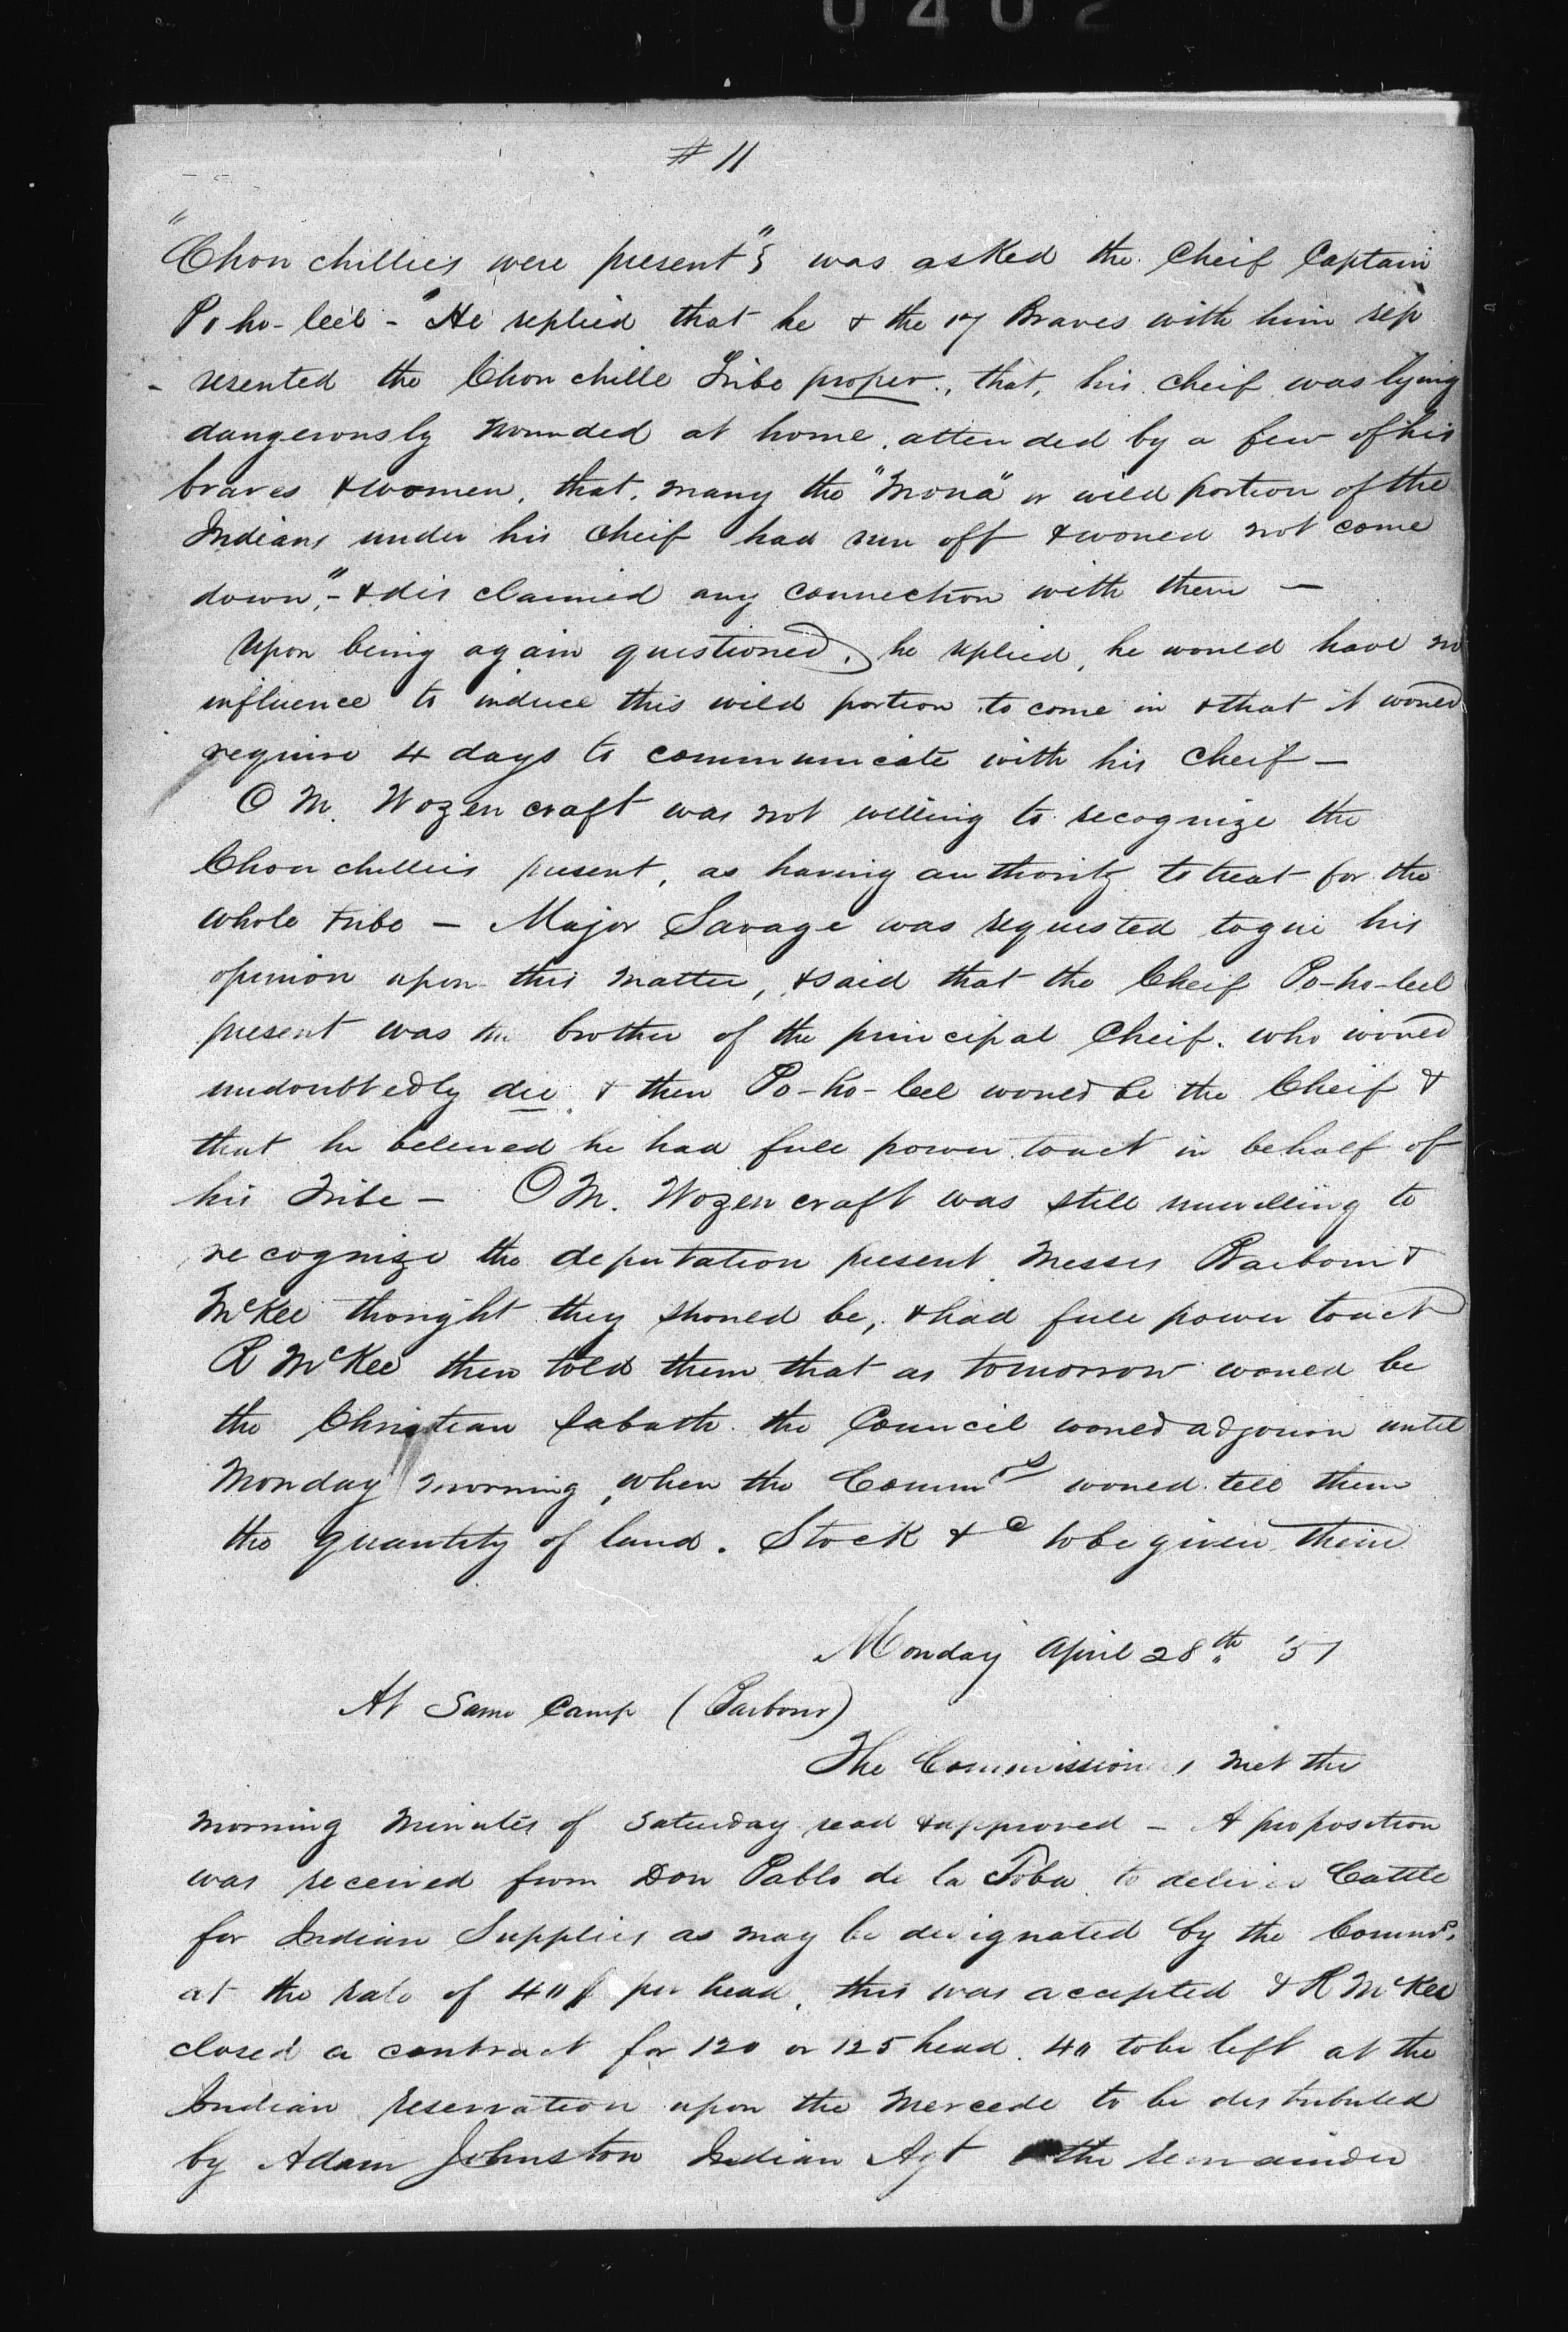 0402
# 11
"Chon chillies were present"? was asked the Cheif Captain
Po-ho-leel - "He replied that he & the 17 Braves with him rep
- resented the Chon chille Tribe proper, that, his cheif was lying
dangerously wounded at home, attended by a few of his
braves & women, that, many the "Mona" or wild portion of the
Indians under his cheif had run off & would not come
down", - & dis claimed any connection with them —
Upon being again questioned, he replied, he would have no
influence to induce this wild portion to come in & that it would
require 4 days to communicate with his cheif —
O M. Wozen craft was not willing to recognize the
Chon chillies present, as having authority to treat for the
whole tribe — Major Savage was requested to give his
opinion upon this matter, & said that the Cheif Po-ho-leel
present was the brother of the principal Cheif. who would
undoubtedly die, & then Po-ho-leel would be the Cheif &
that he beleived he had full power to act in behalf of
his Tribe — O M. Wozen craft was still unwilling to
recognize the deputation present Messrs Barbour &
McKee thought they should be, & had full power to act
R McKee then told them that as tomorrow would be
the Christian Sabath the Council would adjourn until
Monday morning, when the Commrs would tell them
the quantity of land. Stock & c to be given them
Monday April 28th '51
At Same Camp (Barbour)
The Commissioners met this
morning minutes of Saturday read & approved — A proposition
was received from Don Pablo de la Toba to deliver Cattle
for Indian Supplies as may be designated by the Commrs.
at the rate of 40$ per head, this was accepted & R McKee
closed a contract for 120 or 125 head. 40 to be left at the
Indian reservation upon the Mercede to be distributed
by Adam Johnston Indian Agt the remainder